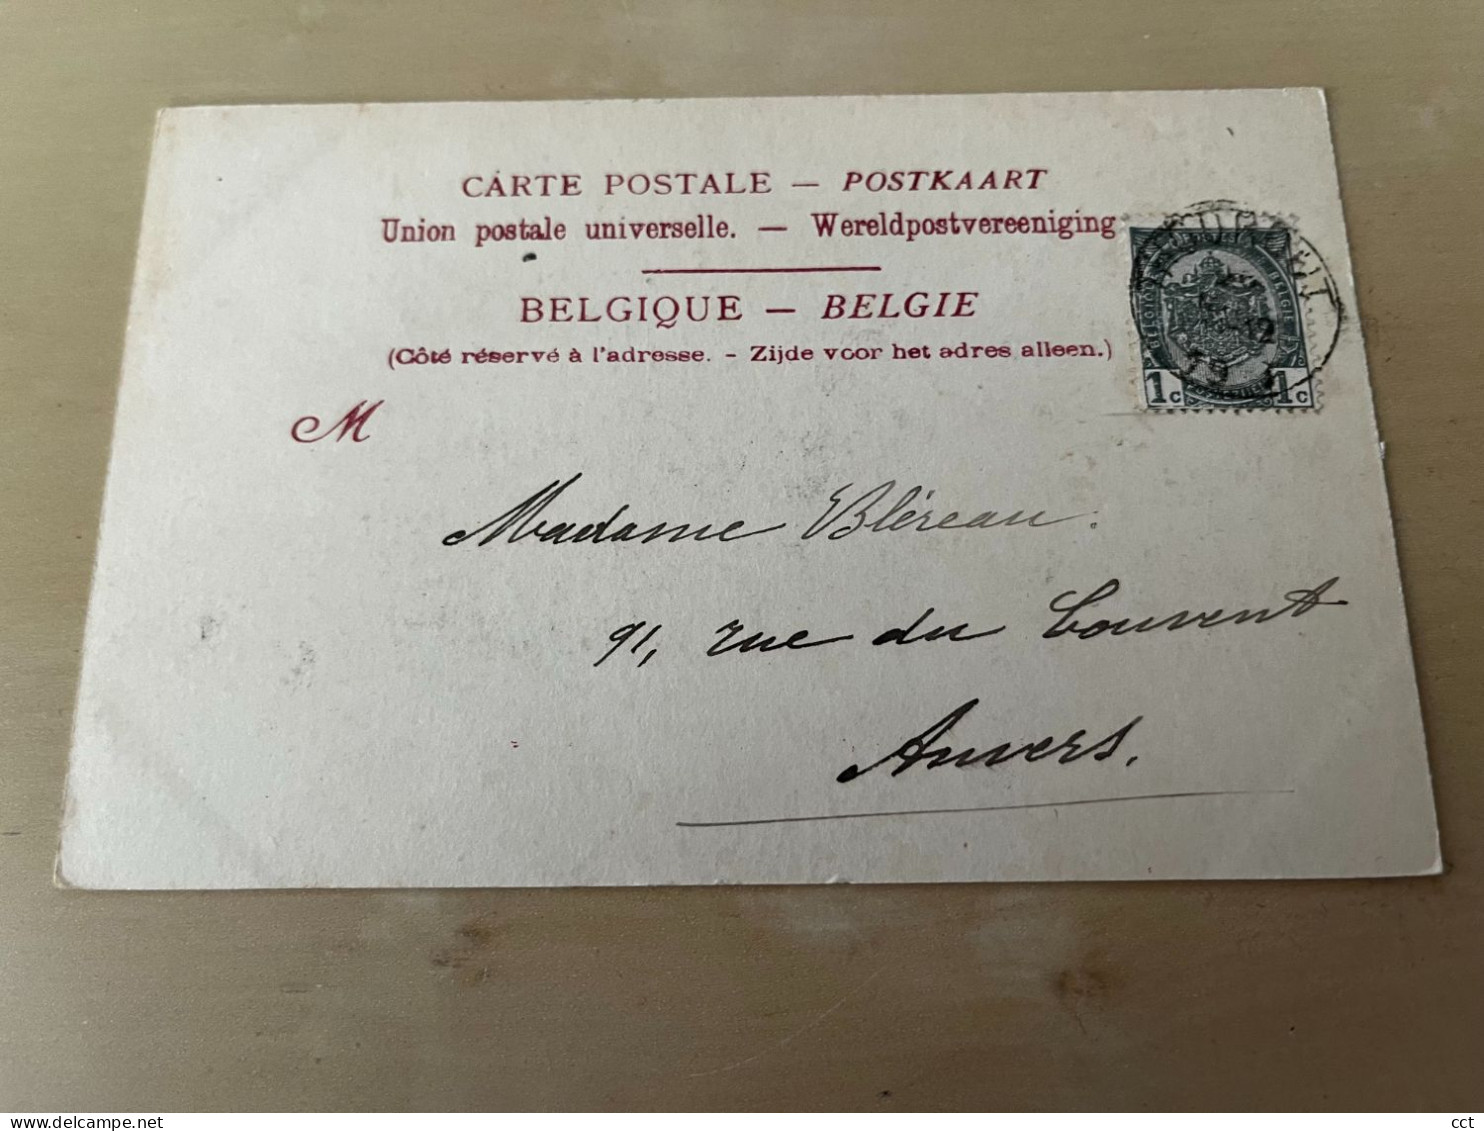 CARTE POSTALE — POSTKAART
Union postale universelle. — Wereldpostvereeniging
BELGIQUE — BELGIE
(Côté réservé à l'adresse. - Zijde voor het adres alleen.)
M
1c 1c
12
Madame Bléreau.
91, rue du Couvent
Anvers.
www.delcampe.net
cct